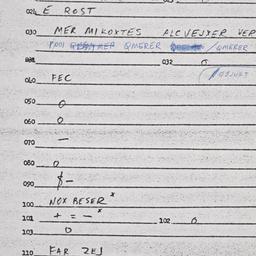 024 E ROST
030 MER MIKOXTES ALCVEJXER VER
QMERER QMERER
032 0
040 FEC
050 0
060 0
070 —
080 0
090 $ -
100 NOX BESER x
101 + = - x 102 0
103 0
110 FAR ZEJ